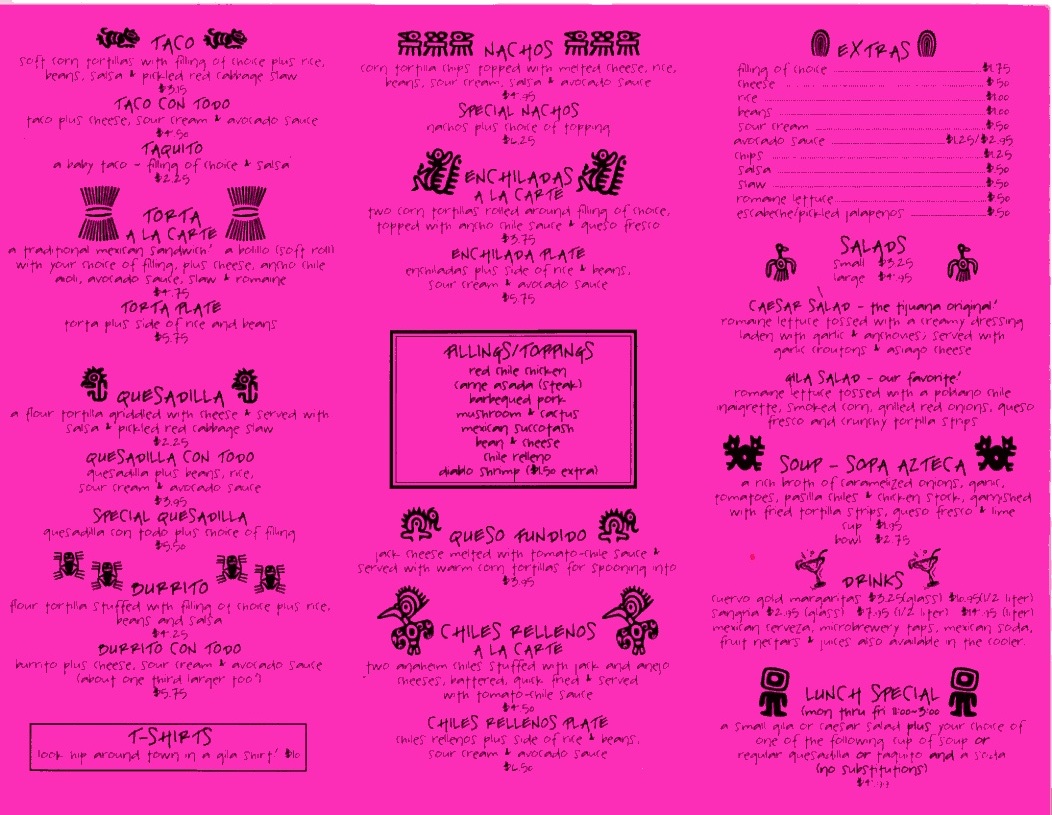 TACO
soft corn tortillas with filling of choice plus rice,
beans, salsa & pickled red cabbage slaw
$3.15
TACO CON TODO
taco plus cheese, sour cream & avocado sauce
$4.50
TAQUITO
a baby taco - filling of choice & salsa
$2.25
TORTA
A LA CARTE
a traditional mexican sandwich! a bolillo (soft roll)
with your choice of filling, plus cheese, ancho chile
aioli, avocado sauce, slaw & romaine
$4.75
TORTA PLATE
torta plus side of rice and beans
$5.75
QUESADILLA
a flour tortilla griddled with cheese & served with
salsa & pickled red cabbage slaw
$2.25
QUESADILLA CON TODO
quesadilla plus beans, rice,
sour cream & avocado sauce
$3.95
SPECIAL QUESADILLA
quesadilla con todo plus choice of filling
$5.50
BURRITO
flour tortilla stuffed with filling of choice plus rice,
beans and salsa
$4.25
BURRITO CON TODO
burrito plus cheese, sour cream & avocado sauce
(about one third larger too!)
$5.75
T-SHIRTS
look hip around town in a gila shirt! $10
NACHOS
corn tortilla chips topped with melted cheese, rice,
beans, sour cream, salsa & avocado sauce
$4.95
SPECIAL NACHOS
nachos plus choice of topping
$6.25
ENCHILADAS
A LA CARTE
two corn tortillas rolled around filling of choice,
topped with ancho chile sauce & queso fresco
$3.75
ENCHILADA PLATE
enchiladas plus side of rice & beans,
sour cream & avocado sauce
$5.75
FILLINGS/TOPPINGS
red chile chicken
carne asada (steak)
barbequed pork
mushroom & cactus
mexican succotash
bean & cheese
chile relleno
diablo shrimp ($1.50 extra)
QUESO FUNDIDO
jack cheese melted with tomato-chile sauce &
served with warm corn tortillas for spooning into
$3.95
CHILES RELLENOS
A LA CARTE
two anaheim chiles stuffed with jack and anejo
cheeses, battered, quick fried & served
with tomato-chile sauce
$4.50
CHILES RELLENOS PLATE
chiles rellenos plus side of rice & beans,
sour cream & avocado sauce
$6.50
EXTRAS
filling of choice $1.75
cheese $.50
rice $1.00
beans $1.00
sour cream $.50
avocado sauce $1.25/$2.95
chips $1.25
salsa $.50
slaw $.50
romaine lettuce $.50
escabeche/pickled jalapenos $.50
SALADS
small $3.25
large $4.95
CAESAR SALAD - the tijuana original!
romaine lettuce tossed with a creamy dressing
laden with garlic & anchovies; served with
garlic croutons & asiago cheese
GILA SALAD - our favorite!
romaine lettuce tossed with a poblano chile
inaigrette, smoked corn, grilled red onions, queso
fresco and crunchy tortilla strips
SOUP - SOPA AZTECA
a rich broth of caramelized onions, garlic,
tomatoes, pasilla chiles & chicken stock, garnished
with fried tortilla strips, queso fresco & lime
cup $1.95
bowl $2.75
DRINKS
cuervo gold margaritas $3.25(glass) $16.95(1/2 liter)
sangria $2.95 (glass) $7.95 (1/2 liter) $14.95 (liter)
mexican cerveza, microbrewery taps, mexican soda,
fruit nectars & juices also available in the cooler.
LUNCH SPECIAL
(mon thru fri 11:00-3:00
a small gila or caesar salad plus your choice of
one of the following cup of soup or
regular quesadilla or taquito and a soda
(no substitutions)